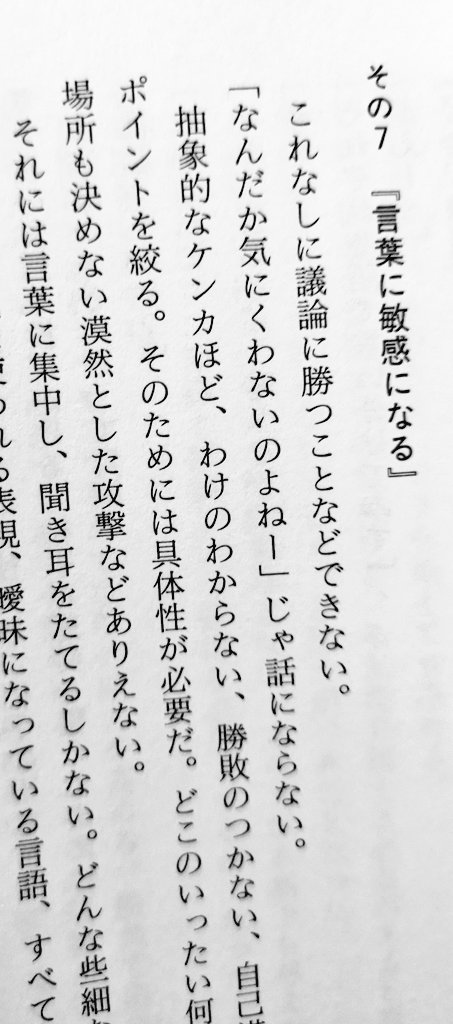 その7 『言葉に敏感になる』
これなしに議論に勝つことなどできない。
「なんだか気にくわないのよねー」じゃ話にならない。
抽象的なケンカほど、わけのわからない、勝敗のつかない、自己満
ポイントを絞る。そのためには具体性が必要だ。どこのいったい何
場所も決めない漠然とした攻撃などありえない。
それには言葉に集中し、聞き耳をたてるしかない。どんな些細な
われる表現、曖昧になっている言語、すべて